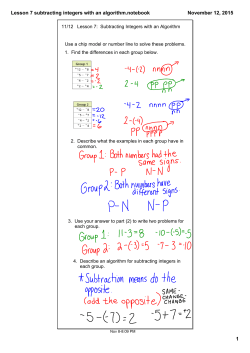 Lesson 7 subtracting integers with an algorithm.notebook
November 12, 2015
11/12 Lesson 7: Subtracting Integers with an Algorithm
Use a chip model or number line to solve these problems.
1. Find the differences in each group below.
Group 1
-4-(-2) nnnn
2-4 PP PP
nn
Group 2
=20
=-12
=-6
=6
-4-2 nnnn PP
nn
2-(-4)
PP nnnn
PPPP
2. Describe what the examples in each group have in
common.
Group 1: Both numbers had the
same signs.
P-P N-N
Group 2: Both numbers have
different signs
P-N N-P
3. Use your answer to part (2) to write two problems for
each group.
Group 1: 11-3=8 -10-(-5)=-5
Group 2: 2-(-3)=5 -7-3=-10
4. Describe an algorithm for subtracting integers in
each group.
* Subtraction means do the
opposite
(add the opposite)
SAME-
CHANGE-
CHANGE
-5-(-7)=2
-5+7=2
Nov 8-6:09 PM
1